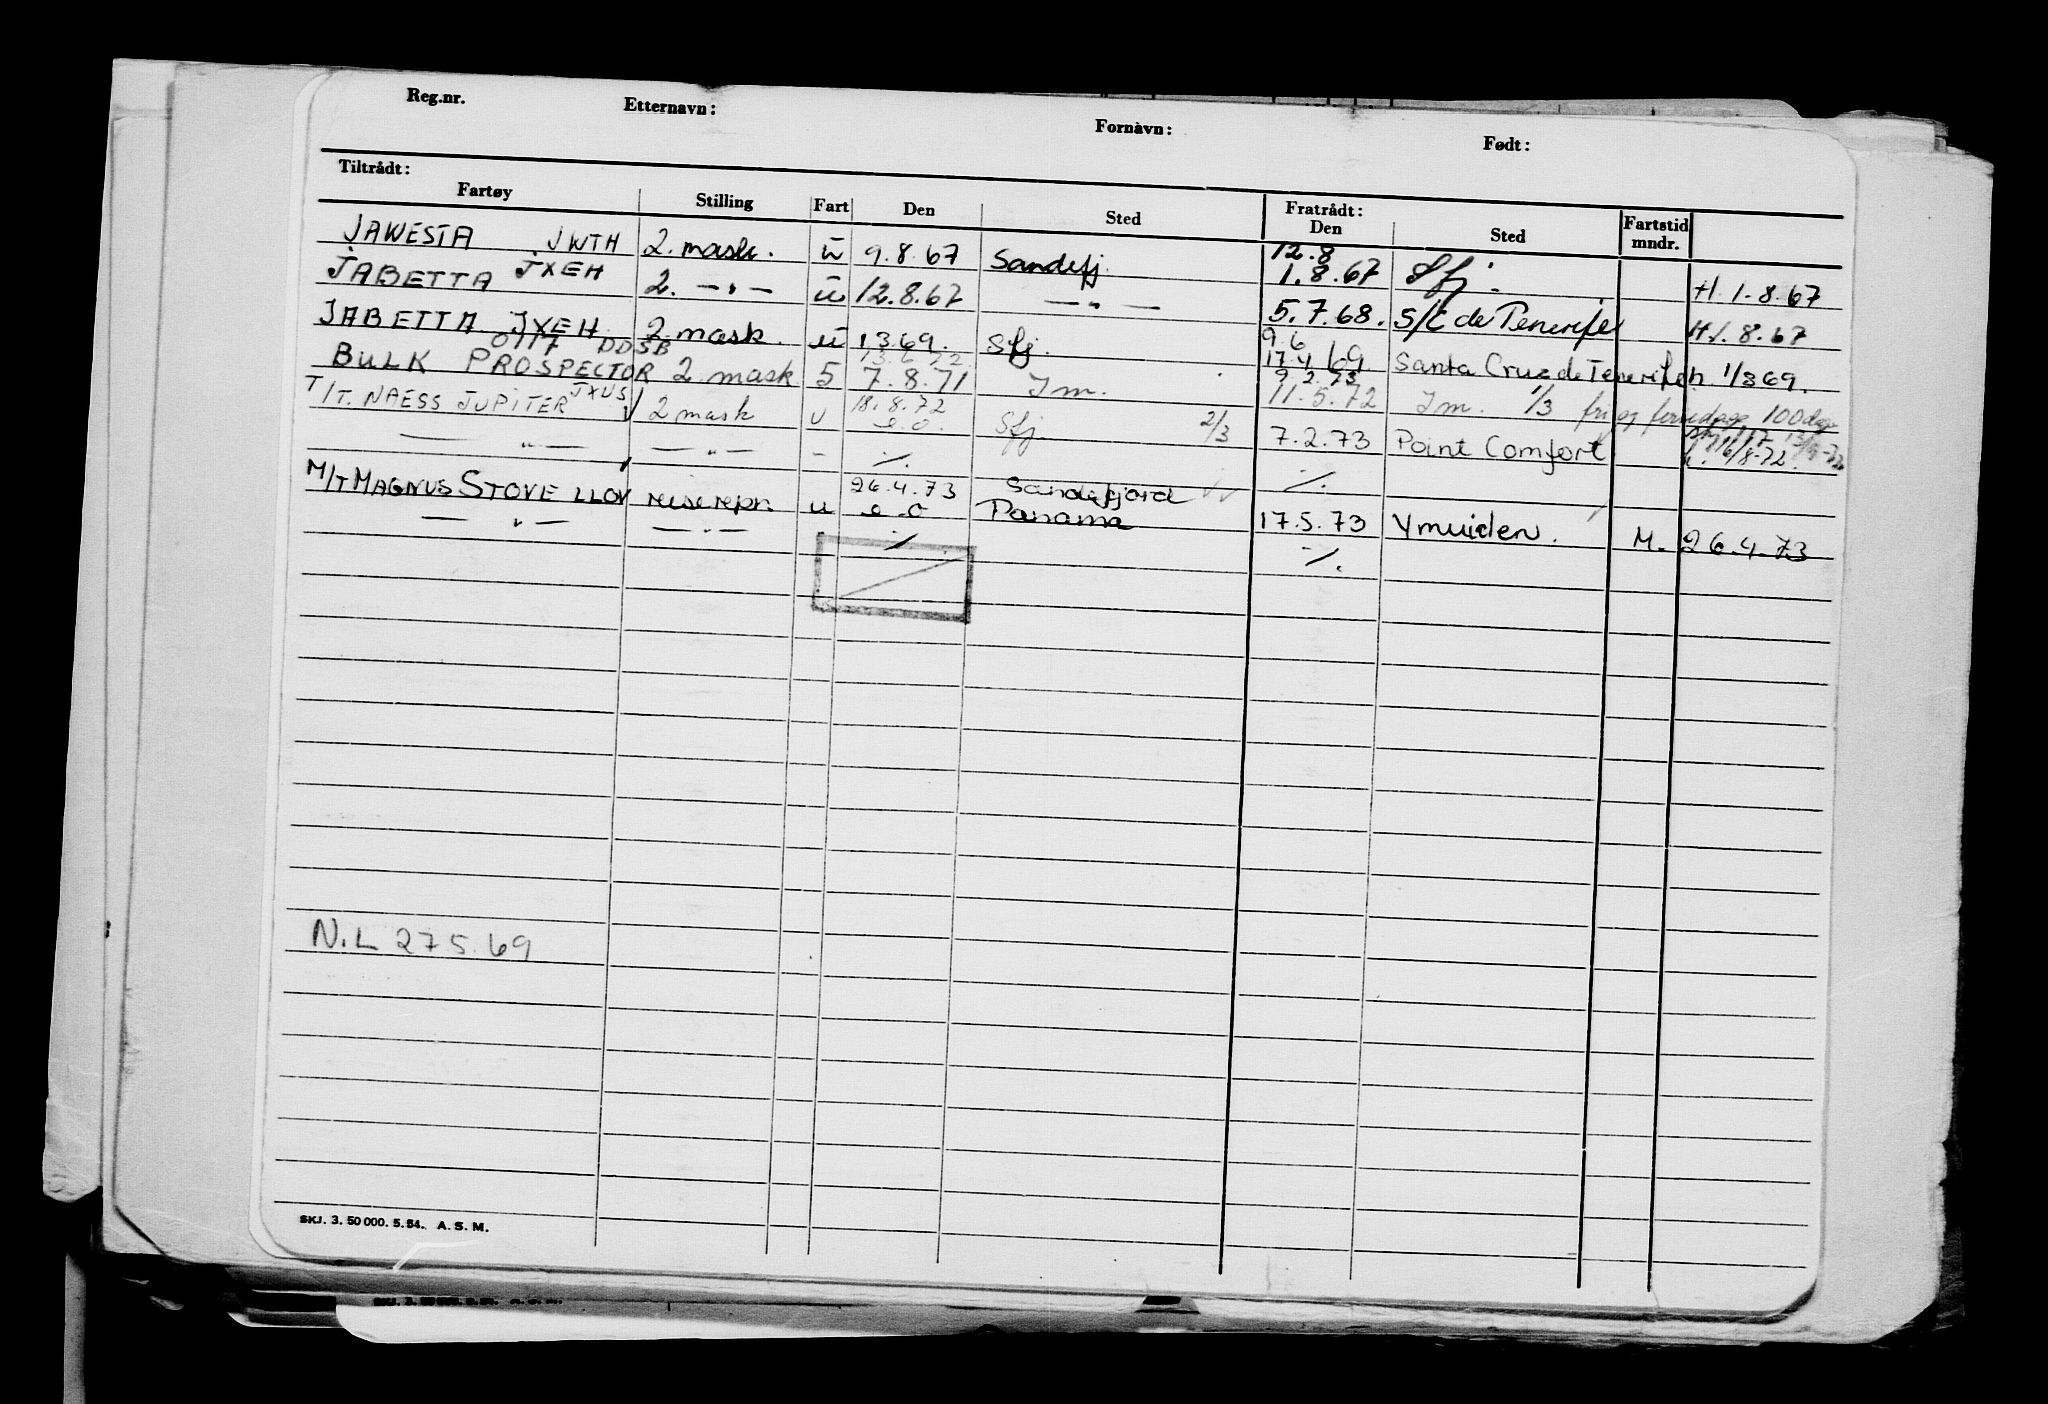 Reg.nr. Etternavn: Fornavn: Født:
Tiltrådt: Fratrådt:
Fartøy Stilling Fart Den Sted Den Sted Fartstid mndr.
JAWESTA JWTH 2. mask. u 9.8.67 Sandefj. 12.8 1.8.67 Sfj. H. 1.8.67
JABETTA JXEH 2. —"— u 12.8.67 —"— 5.7.68. S/C de Tenerife H 1.8.67
JABETTA JXEH 2 mask. u 1369. Sfj. 9.6 17.4 69 Santa Cruz de Tenerife h. 1/369.
0117 DDSB 13.6.72 9.2.73
BULK PROSPECTOR 2 mask 5 7.8.71 Im. 11.5.72 Im. 1/3 fri og 100 dage
T/T. NAESS JUPITER JXUS 2 mask u 18.8.72 e.o. Sfj. 2/3 7.2.73 Point Comfort h. 16/8-72.
—"— —"— - ./. ./.
M/T MAGNUS STOVE LLOV reiserepr. u 26.4.73 e.o Sandefjord Panama 17.5.73 Ymuiden. M. 26.4.73
—"— —"— ./. ./.
N.L 275.69
SKJ. 3. 50 000. 5. 54. A. S. M.